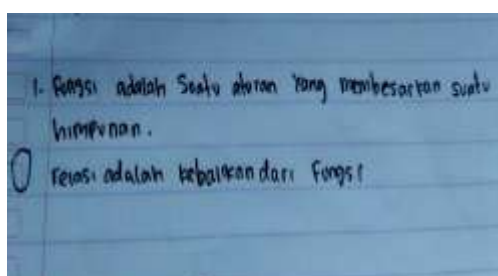 1. Fungsi adalah Suatu aturan Yang membesarkan suatu
himpunan.
relasi adalah kebalikan dari Fungsi